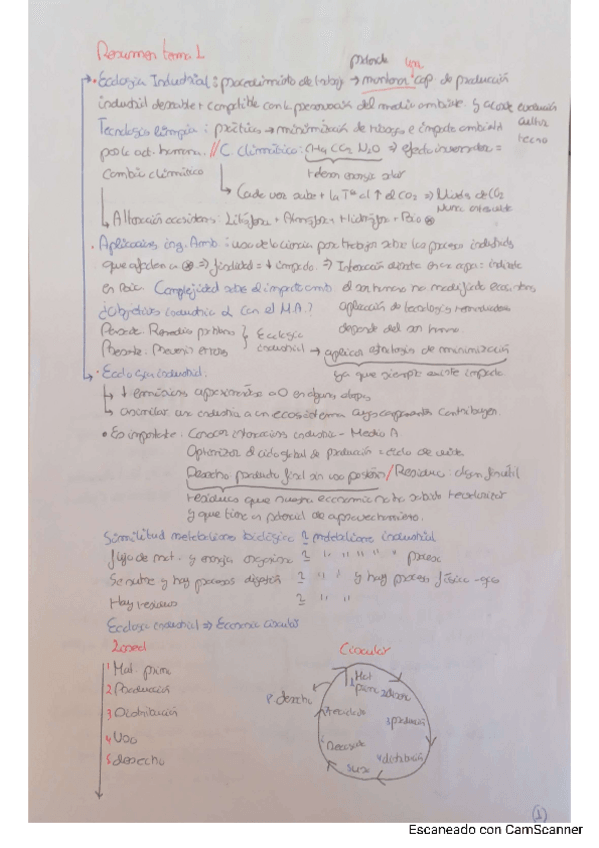 Resumen tema 1
pretende
• Ecología Industrial: procedimiento de trabajo → mantener cap. de producción
industrial deseable + compatible con la preservación del medio ambiente y acorde evolución
cultu
tecno
Tecnología limpia: prácticas → minimización de riesgos e impacto ambiental
por la act. humana. // C. climático: CH4 CO2 N2O → efecto invernadero =
Cambio climático
retienen energía solar
Cada vez sube + la Tª al ↑ el CO2 ⇒ Niveles de CO2
Nunca
→ Alteración ecosistema: Litosfera + Atmósfera + Hidrosfera + Bio
• Aplicaciones ing. Amb: uso de la ciencia para trabajar sobre los procesos industriales
que afectan a ⇒ finalidad = ↓ impacto. ⇒ Interacción directa en = indirecta
en Complejidad sobre el impacto amb. el ser humano ha modificado ecosistemas
¿Objetivos industria al con el M.A.? aplicación de tecnologías
depende del ser humano
Remedia problemas } Ecología
Presente. Prevenir errores } industrial → aplicar estrategia de minimización
ya que siempre existe impacto
• Ecología industrial:
→ ↓ emisiones aproximándose a 0 en algunas etapas
→ asimilar una industria a un ecosistema cuyos componentes contribuyen.
• Es importante: Conocer interacciones industria - Medio A.
Optimizar el ciclo global de producción = ciclo de vida
Desecho: producto final sin uso posterior / Residuo: algo inútil
residuos que nuestra economía no ha sabido
y que tiene un potencial de aprovechamiento.
Similitud metabolismo biológico ≃ metabolismo industrial
flujo de mat. y energía organismo ≃ " " " " " proceso
Se nutre y hay procesos digestión ≃ " " y hay proceso físico-
Hay residuos ≃ " "
Ecología industrial ⇒ Economía circular
Lineal
1 Mat. prima
2 Producción
3 Distribución
4 Uso
5 desecho
Circular
1 Mat
prima
2 diseño
3 producción
4 distribución
5 uso
reciclado
desecho
(1)
Escaneado con CamScanner